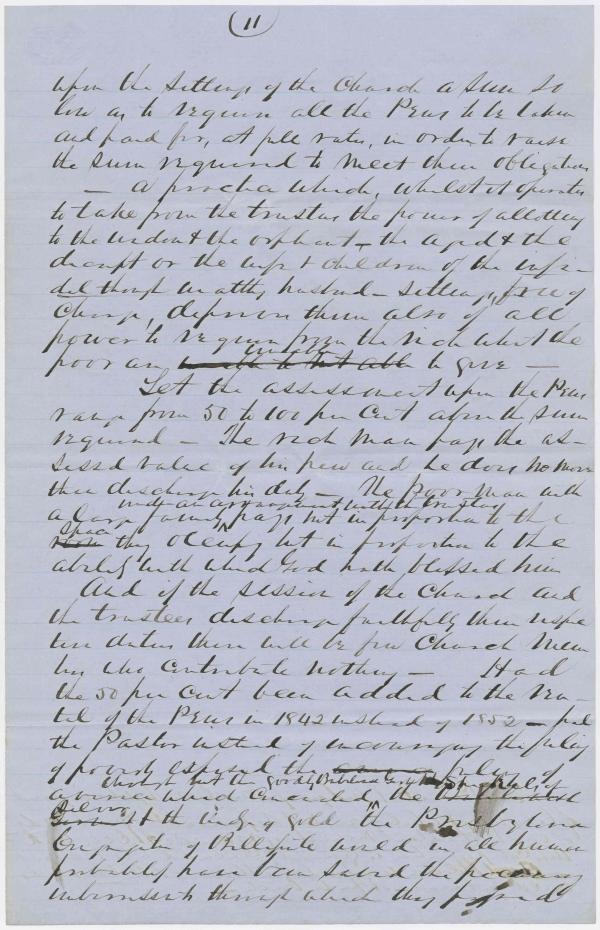 11
upon the Sittings of the Church a Sum So
low as to require all the Pews to be taken
and paid for, at full rates, in order to raise
the Sum required to meet their obligations
— a practice which, whilst it operates
to take from the trustees the power of allotting
to the widow & the orphant — the aged & the
decrept or the wife & children of the infi-
del though wealthy husband — Sittings, free of
Charge, deprives them also of all
power to require from the rich what the
poor are unable to give —
Let the assessment upon the Pews
range from 50 to 100 per Cent above the Sum
required — The rich man pays the as-
sessed value of his pew and he does no more
than discharge his duty — The poor man with
under an arrangement with the trustees
a large family pays not in proportion to the
Space
they occupy but in proportion to the
ability with which God hath blessed him
And if the Session of the Church and
the trustees discharge faithfully their respec
tive duties there will be few Church Mem
bers who Contribute nothing — Had
the 50 per Cent been added to the ren-
tal of the Pews in 1842 instead of 1852 —
the Pastor instead of encouraging the
of poverty exposed the of
avarice which concealed the
Silver & the of gold the Presbyterian
Congregation of Bellefonte would in all human
probability have been Saved the pecuniary
embarrassments through which they passed